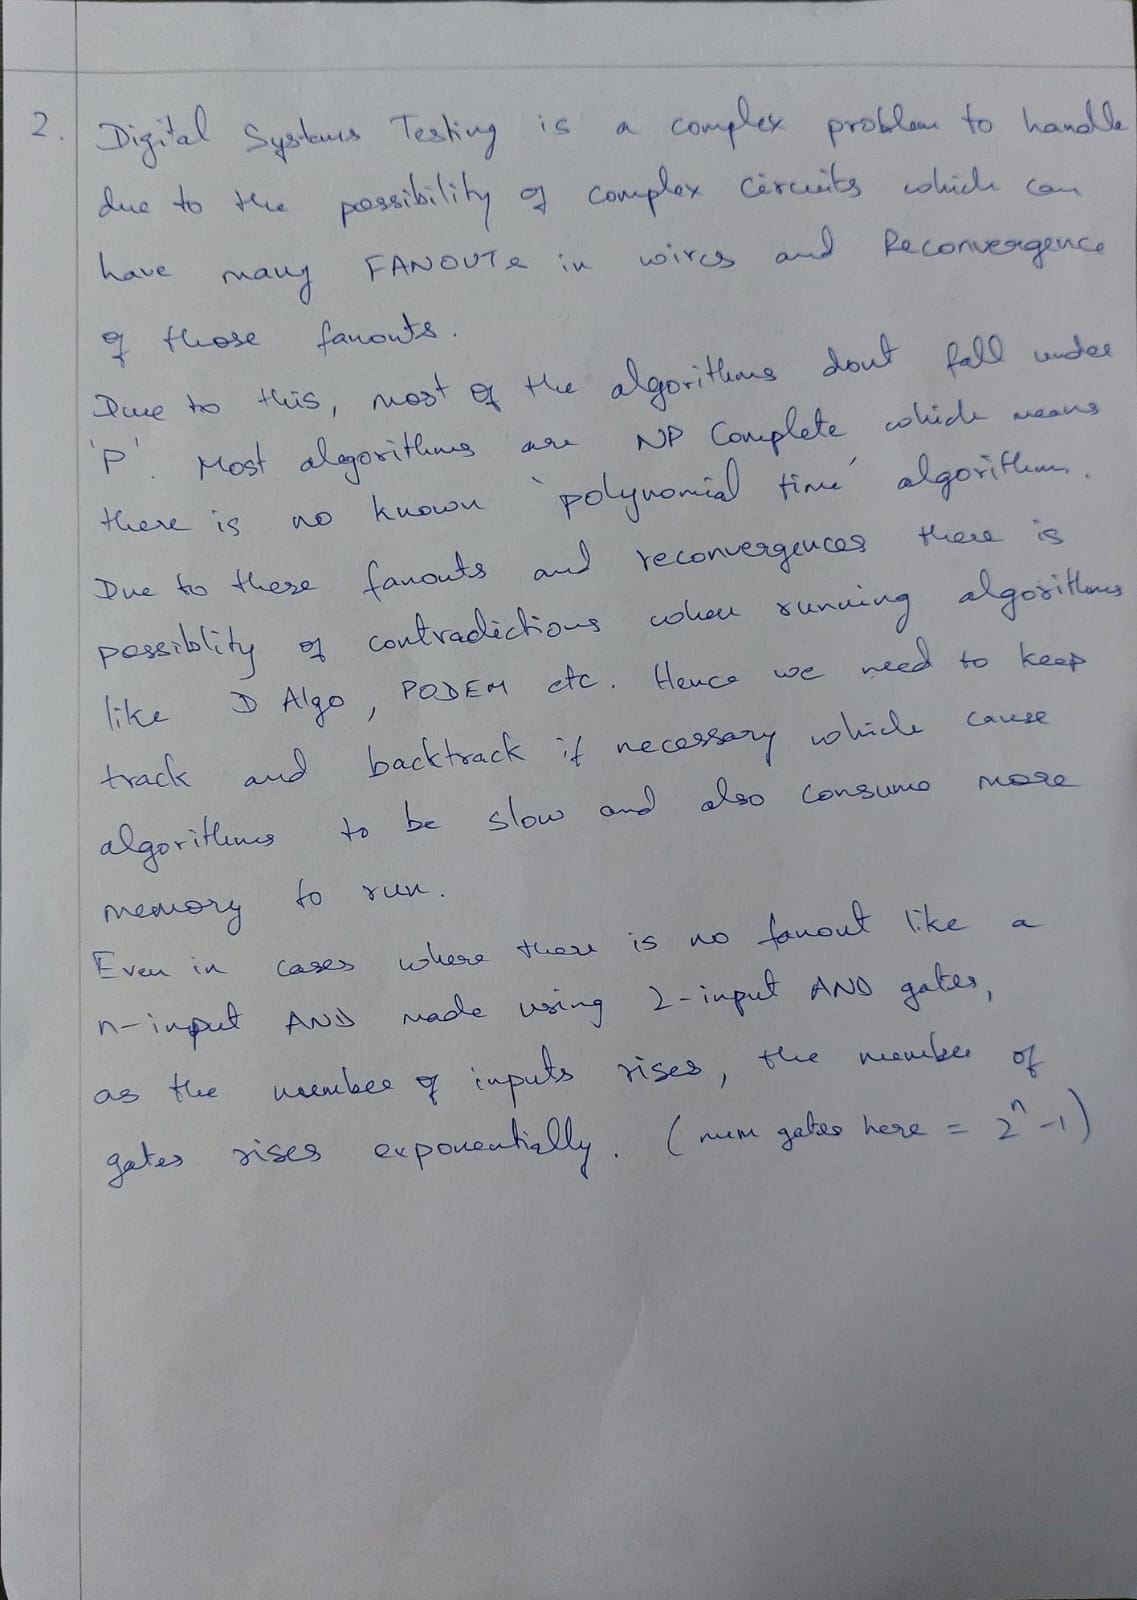 2. Digital Systems Testing is a complex problem to handle
due to the possibility of complex circuits which can
have many FANOUTs in wires and Reconvergence
of those fanouts.
Due to this, most of the algorithms dont fall under
'P'. Most algorithms are NP Complete which means
there is no known 'polynomial time' algorithm.
Due to these fanouts and reconvergences there is
possiblity of contradictions when running algorithms
like D Algo, PODEM etc. Hence we need to keep
track and backtrack if necessary which cause
algorithms to be slow and also consume more
memory to run.
Even in cases where there is no fanout like a
n-input AND made using 2-input AND gates,
as the number of inputs rises, the number of
gates rises exponentially. (num gates here = 2ⁿ-1)